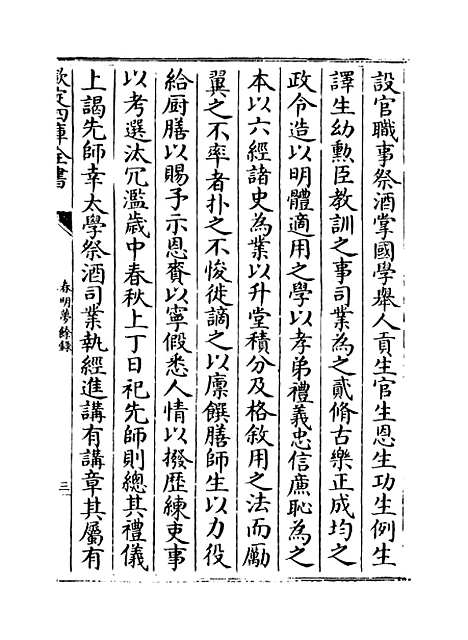 設官職事祭酒掌國學舉人貢生官生恩生功生例生
譯生幼勲臣教訓之事司業為之貳脩古樂正成均之
政令造以明體適用之學以孝弟禮義忠信廉恥為之
本以六經諸史為業以升堂積分及格敘用之法而勵
翼之不率者扑之不悛徙謫之以廪饌膳師生以力役
給厨膳以賜予示恩賚以寧假悉人情以撥歴練吏事
以考選汰冗濫歲中春秋上丁日祀先師則總其禮儀
上謁先師幸太學祭酒司業執經進講有講章其屬有
欽定四庫全書
春明夢餘錄
三